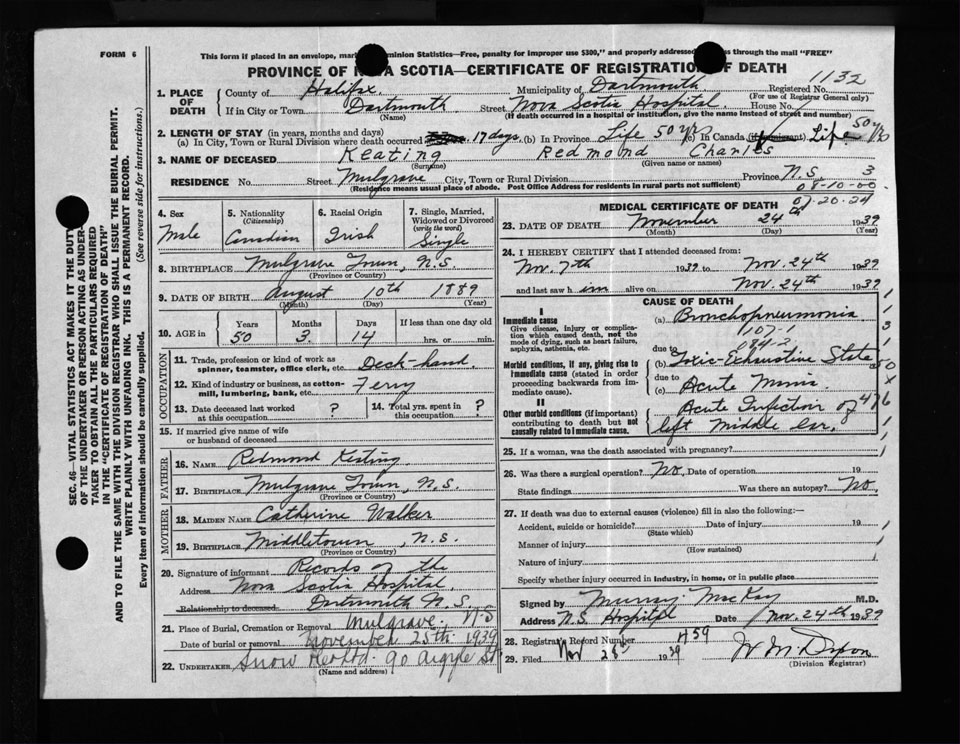 FORM 6
This form if placed in an envelope, mar Dominion Statistics—Free, penalty for improper use $300," and properly addressed s through the mail "FREE"
PROVINCE OF NOVA SCOTIA—CERTIFICATE OF REGISTRATION OF DEATH
1132
1. PLACE OF DEATH
County of Halifax Municipality of Dartmouth Registered No.
(For use of Registrar General only)
If in City or Town Dartmouth Street Nova Scotia Hospital House No.
(Name) (If death occurred in a hospital or institution, give the name instead of street and number)
2. LENGTH OF STAY (in years, months and days)
(a) In City, Town or Rural Division where death occurred 17 days. (b) In Province Life 50 yrs (c) In Canada (if immigrant) Life 50 yrs
3. NAME OF DECEASED Keating Redmond Charles
(Surname) (Given name or names)
RESIDENCE No. Street Mulgrave City, Town or Rural Division Province N.S. 3
(Residence means usual place of abode. Post Office Address for residents in rural parts not sufficient)
08-10-00
07-20-24
SEC. 46—VITAL STATISTICS ACT MAKES IT THE DUTY
OF THE UNDERTAKER OR PERSON ACTING AS UNDER-
TAKER TO OBTAIN ALL THE PARTICULARS REQUIRED
IN THE "CERTIFICATE OF REGISTRATION OF DEATH"
AND TO FILE THE SAME WITH THE DIVISION REGISTRAR WHO SHALL ISSUE THE BURIAL PERMIT.
WRITE PLAINLY WITH UNFADING INK. THIS IS A PERMANENT RECORD.
Every Item of Information should be carefully supplied. (See reverse side for instructions.)
4. Sex
Male
5. Nationality
(Citizenship)
Canadian
6. Racial Origin
Irish
7. Single, Married, Widowed or Divorced
(write the word)
Single
8. BIRTHPLACE Mulgrave Town, N.S.
(Province or Country)
9. DATE OF BIRTH August 10th 1889
(Month) (Day) (Year)
10. AGE in
Years Months Days If less than one day old
50 3 14 hrs. or min.
OCCUPATION
11. Trade, profession or kind of work as spinner, teamster, office clerk, etc. Deck-hand
12. Kind of industry or business, as cotton-mill, lumbering, bank, etc. Ferry
13. Date deceased last worked at this occupation ?
14. Total yrs. spent in this occupation ?
15. If married give name of wife or husband of deceased
FATHER
16. NAME Redmond Keating
17. BIRTHPLACE Mulgrave Town, N.S.
(Province or Country)
MOTHER
18. MAIDEN NAME Catherine Walker
19. BIRTHPLACE Middletown, N.S.
(Province or Country)
20. Signature of informant Records of the
Address Nova Scotia Hospital,
Relationship to deceased Dartmouth N.S.
21. Place of Burial, Cremation or Removal Mulgrave NS
Date of burial or removal November 25th 1939
22. UNDERTAKER Snow 90 Argyle St
(Name and address)
MEDICAL CERTIFICATE OF DEATH
23. DATE OF DEATH November 24th 1939
(Month) (Day) (Year)
24. I HEREBY CERTIFY that I attended deceased from:
Nov. 7th 1939 to Nov. 24th 1939
and last saw him alive on Nov. 24th 1939
CAUSE OF DEATH
I
Immediate cause
Give disease, injury or complication which caused death, not the mode of dying, such as heart failure, asphyxia, asthenia, etc.
(a) Bronchopneumonia
107-1
084-2
Morbid conditions, if any, giving rise to immediate cause (stated in order proceeding backwards from immediate cause).
due to
(b) Toxic-Exhaustive State
due to
(c) Acute Mania
II
Other morbid conditions (if important) contributing to death but not causally related to immediate cause.
Acute Infection of
left Middle ear.
476
25. If a woman, was the death associated with pregnancy?
26. Was there a surgical operation? No. Date of operation 19
State findings Was there an autopsy? No.
27. If death was due to external causes (violence) fill in also the following:—
Accident, suicide or homicide? Date of injury 19
(State which)
Manner of injury
(How sustained)
Nature of injury
Specify whether injury occurred in industry, in home, or in public place
Signed by Murray MacKay M.D.
Address N.S. Hospital Date Nov. 24th 1939
28. Registrar's Record Number 459
29. Filed Nov 28th 1939 W M Dixon
(Division Registrar)